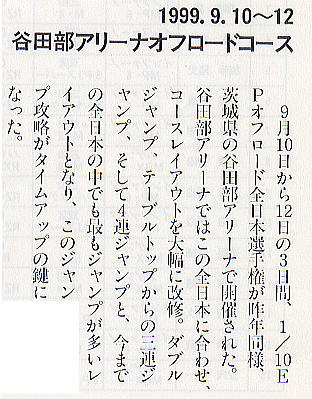 1999.9.10〜12
谷田部アリーナオフロードコース
9月10日から12日の3日間、1/10E
Pオフロード全日本選手権が昨年同様、
茨城県の谷田部アリーナで開催された。
谷田部アリーナではこの全日本に合わせ、
コースレイアウトを大幅に改修。ダブル
ジャンプ、テーブルトップからの三連ジ
ャンプ、そして4連ジャンプと、今まで
の全日本の中でも最もジャンプが多いレ
イアウトとなり、このジャン
プ攻略がタイムアップの鍵に
なった。